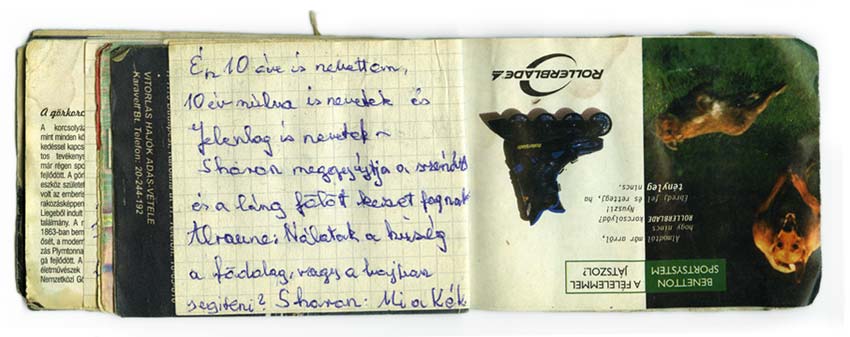 A görkorc
A korcsolyáz
mint minden kö
kedéssel kapcs
tos tevékenys
már régen spo
fejlődött. A gör
eszköz születé
volt az emberis
rakozásképpen
Liegeből indult
találmány. A n
1863-ban bem
ősét, a modern
zás Plymtonna
gá fejlődött. A
életművészek
Nemzetközi Gö
VITORLÁS HAJÓK ADÁS-VÉTELE
Karavell Bt. Telefon: 20-244-192
Én 10 éve is nevettem,
10 év múlva is nevetek és
Jelenleg is nevetek~
Sharon meggyújtja a
és a láng fölött kezet fognak
Alraune: Nálatok a hűség
a fődolog, vagy a bajban
segíteni? Sharon: Mi a Kék
ROLLERBLADE
Álmodtál már arról,
hogy nincs
ROLLERBLADE korcsolyád?
Nyuszi!
Ébredj fel és rettegj, ha
tényleg nincs.
A FÉLELEMMEL
JÁTSZOL?
BENETTON
SPORTSYSTEM